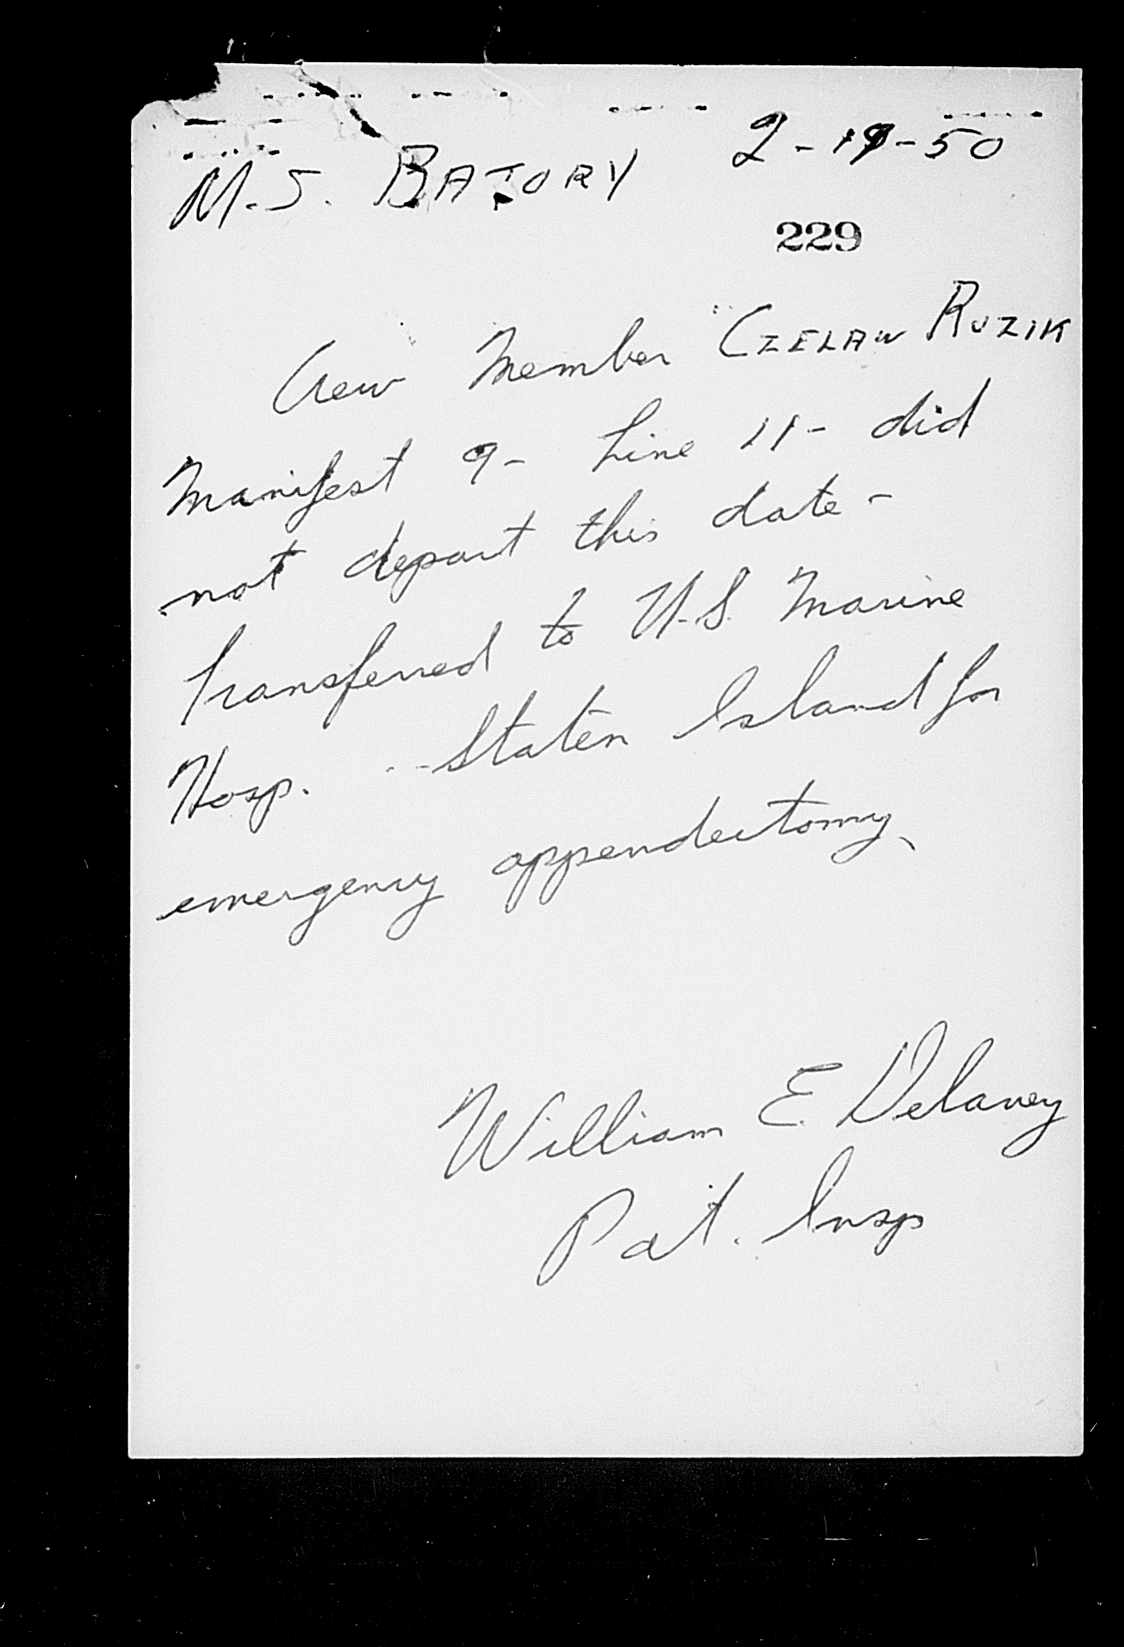 M.S. BATORY 2-19-50
229
Crew Member CZELAW RUZIK
Manifest 9- Line 11- did
not depart this date -
Transferred to U.S. Marine
Hosp. -- Staten Island for
emergency appendectomy.
William E. Delaney
Pat. Insp